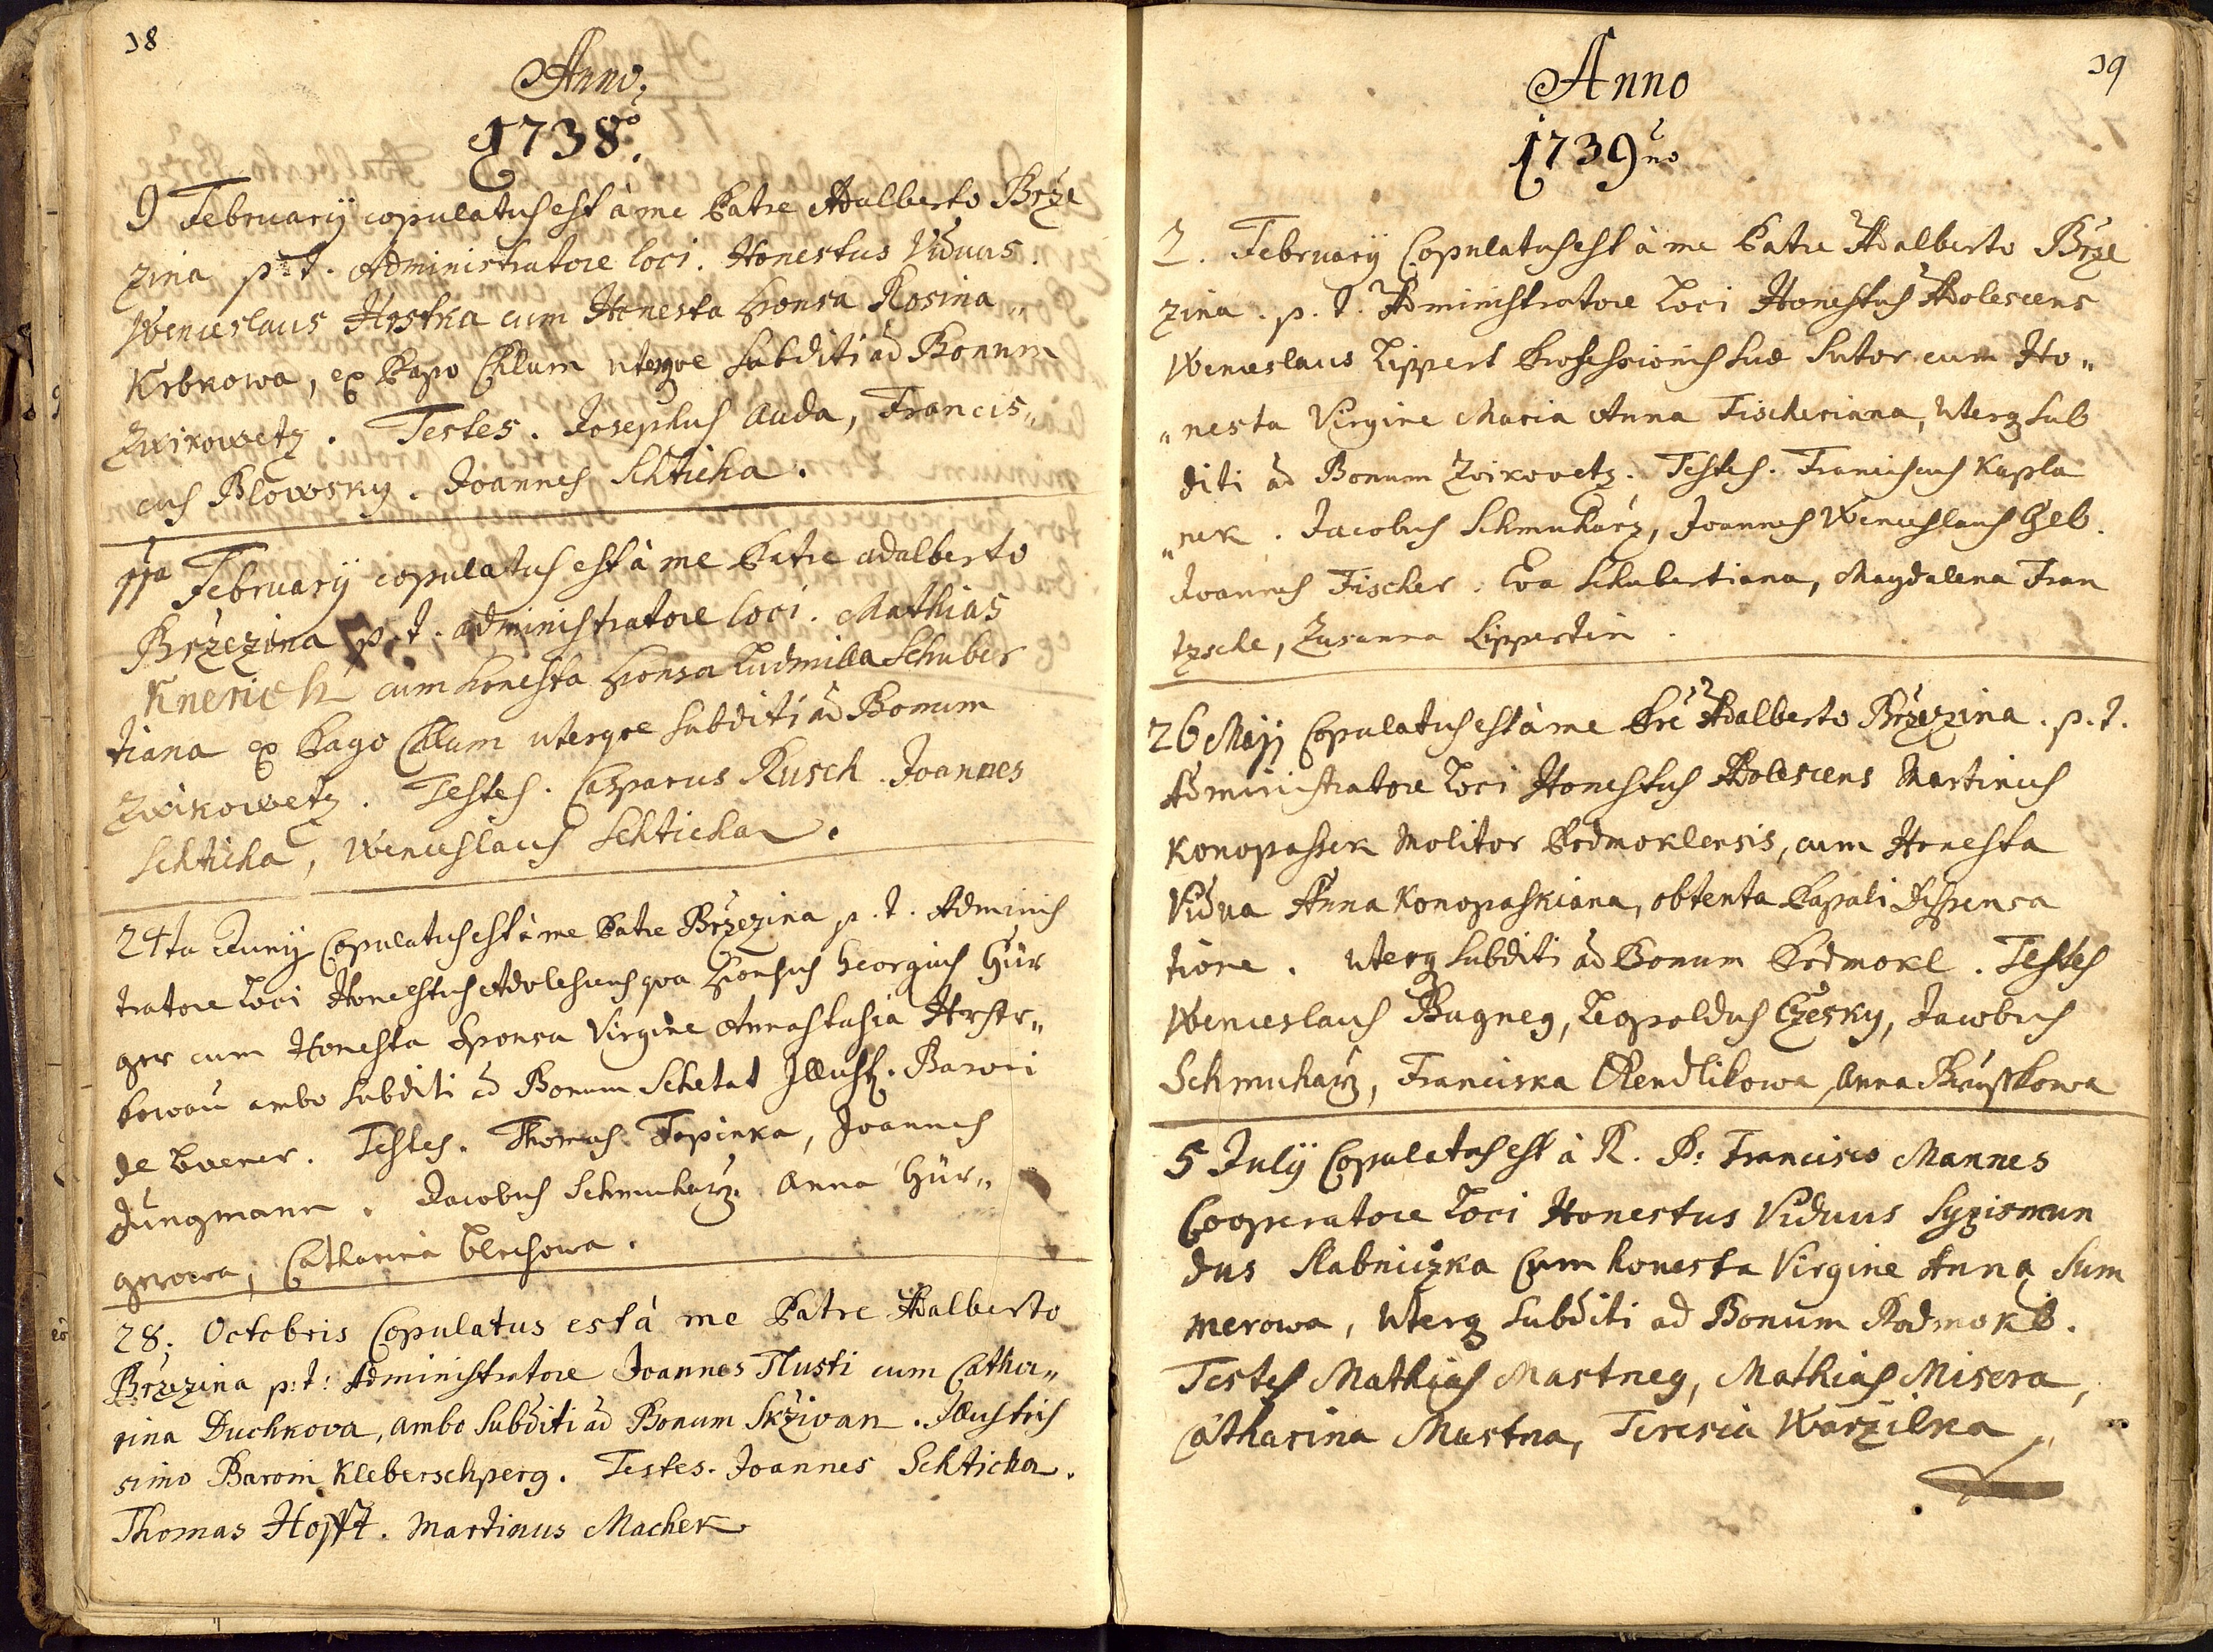 38
Anno
1738vo.
9 February copulatus est à me Patre Adalberto Brze
zina p. t. Administratore loci. Honestus Viduus.
Wenceslaus Hrstka cum Honesta Sponsa Rosina „
Krbkowa, ex Pago Chlum uterqve subditi ad Bonum
Zwikowetz. Testes. Josephus Auda, Francis„
cus Blowsky. Joannes Schticha.
11a February copulatus est à me Patre adalberto
Brzezina p. t. administratore loci. Mathias
Knerich cum honesta Sponsa Ludmilla Schuber
tiana ex Pago Chlum uterqve subditi ad Bonum
Zwikowetz. Testes. Casparus Rusch. Joannes
Schticha, Wenceslaus Schticha.
24ta Juny Copulatus est à me Patre Brzezina p. t. Adminis
tratore Loci Honestus Adolescens qva Sponsus Georgius Hür
ger cum Honesta Sponsa Virgine Annastasia
ambo subditi ad Bonum Schetat Illust. Baroni
de. Testes. Thomas Topinka, Joannes
Jungmann. Jacobus Schmucharz. Anna Hür„
gerowa, Catharina
28. Octobris Copulatus est à me Patre Adalberto
Brzezina p: t: Administratore Joannes Tlusti cum Catha„
rina Duchkova, ambo subditi ad Bonum Skživan. Illustris
simo Baroni Kleberschperg. Testes. Joannes Schticha.
Thomas Hofft. Martinus Machek
39
Anno
1739no
2. February Copulatus est à me Patre Adalberto Brze
zina. p. t. Administratore Loci Honestus Adolescens
Wenceslaus Lippert Professionis suae Sutor cum Ho„
„nesta Virgine Maria Anna Fischeriana, Uterq sub
diti ad Bonum Zwikovetz. Testes. Franciscus Kapla
„nek. Jacobus Schmucharz, Joannes Wenceslaus
Joannes Fischer. Eva Schubertiana, Magdalena Fran
tzsche, Zusanna Lippertin.
26 Maji Copulatus est à me Pre Adalberto Brzezina. p. t.
Administratore Loci Honestus Adolescens Martinus
Konopassek Molitor Podmoklensis, cum Honesta
Vidua Anna Konopaskiana, obtenta Papali Dispensa
tione. Uterq subditi ad Bonum Podmokl. Testes
Wenceslaus Bugneg, Leopoldus Czesky, Jacobus
Schmucharz, Franciska Anna
5 July Copulatus est à R. P: Francisco Mannes
Cooperatore Loci Honestus Viduus Sygismun
dus Slabniczka Cum honesta Virgine Anna Sum
merowa, Uterq subditi ad Bonum Podmokl.
Testes Mathias Mastneg, Mathias Misera,
Catharina Mastna, Teresia Warzilka